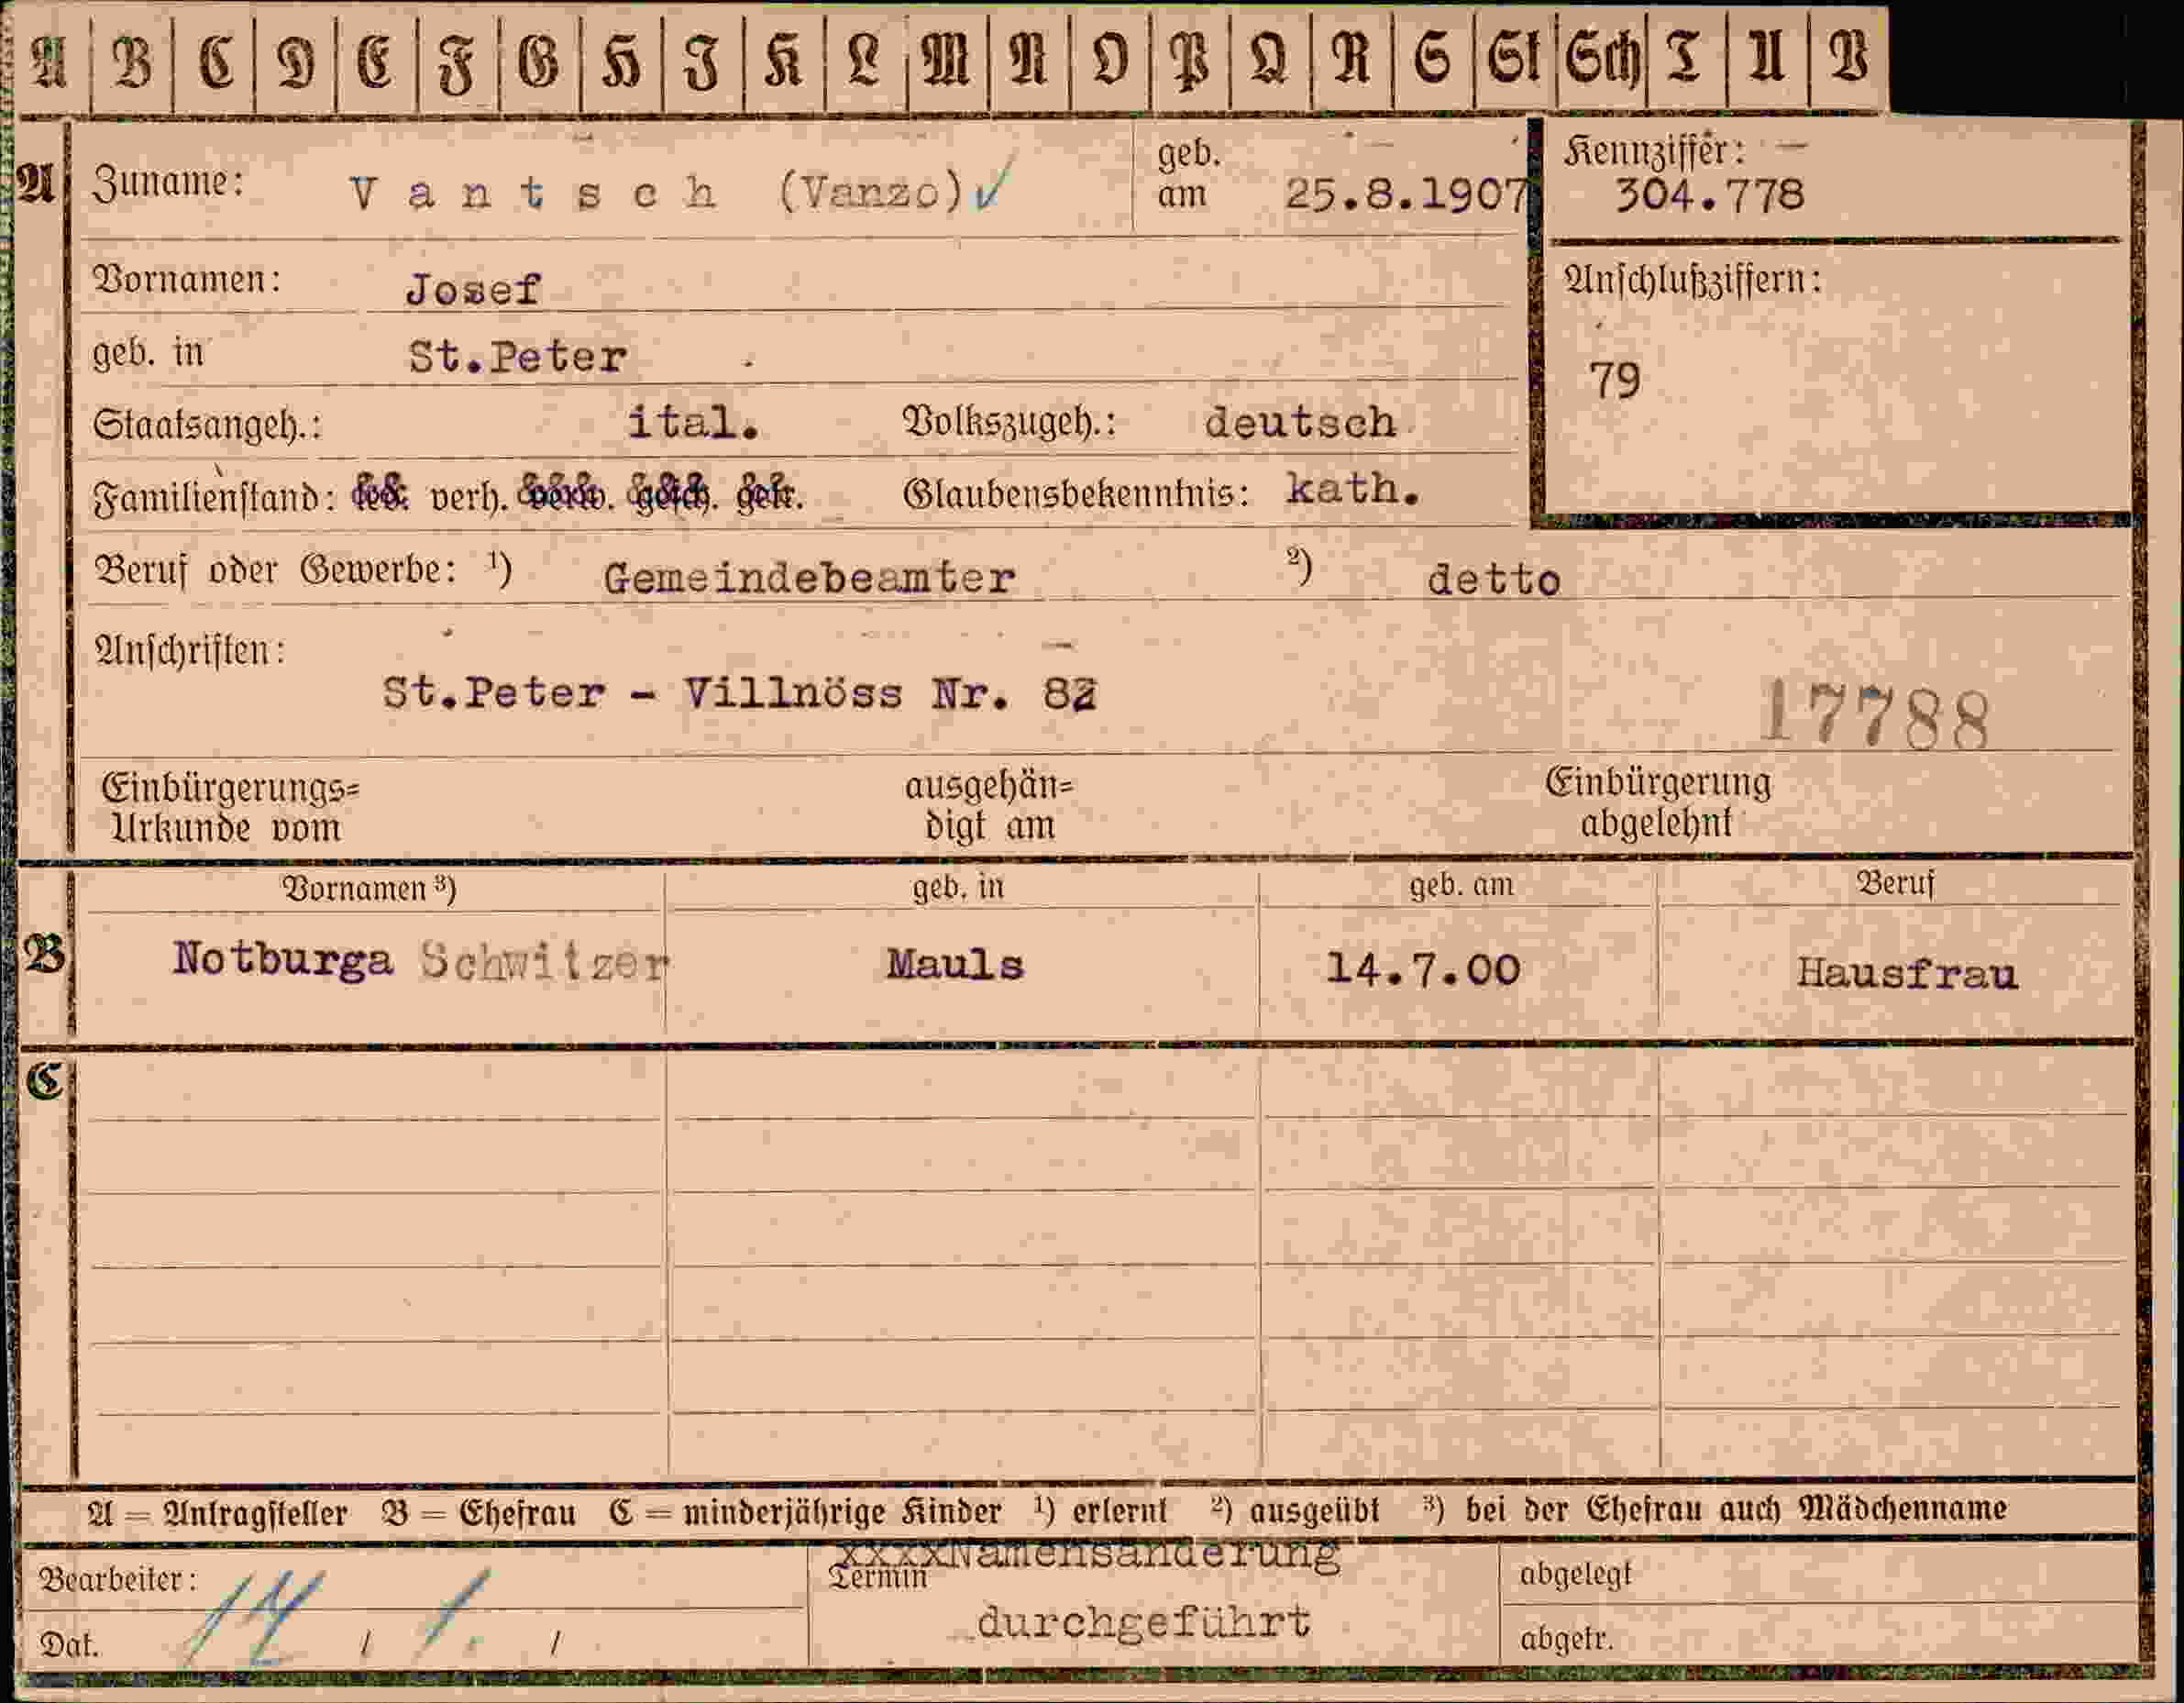 A B C D E F G H I K L M N O P Q R S St Sch T U V
A Zuname: Vantsch (Vanzo) ✓ geb. am 25.8.1907 Kennziffer: 304.778
Vornamen: Josef Anschlußziffern:
geb. in St.Peter 79
Staatsangeh.: ital. Volkszugeh.: deutsch
Familienstand: verh. Glaubensbekenntnis: kath.
Beruf oder Gewerbe: ¹) Gemeindebeamter ²) detto
Anschriften:
St.Peter - Villnöss Nr. 82
17788
Einbürgerungs= ausgehän= Einbürgerung
Urkunde vom digt am abgelehnt
Vornamen ³) geb. in geb. am Beruf
B Notburga Schwitzer Mauls 14.7.00 Hausfrau
C
A = Antragsteller B = Ehefrau C = minderjährige Kinder ¹) erlernt ²) ausgeübt ³) bei der Ehefrau auch Mädchenname
xxxxNamensänderung
Bearbeiter: Termin abgelegt
durchgeführt
Dat. 14 / 1. / abgetr.